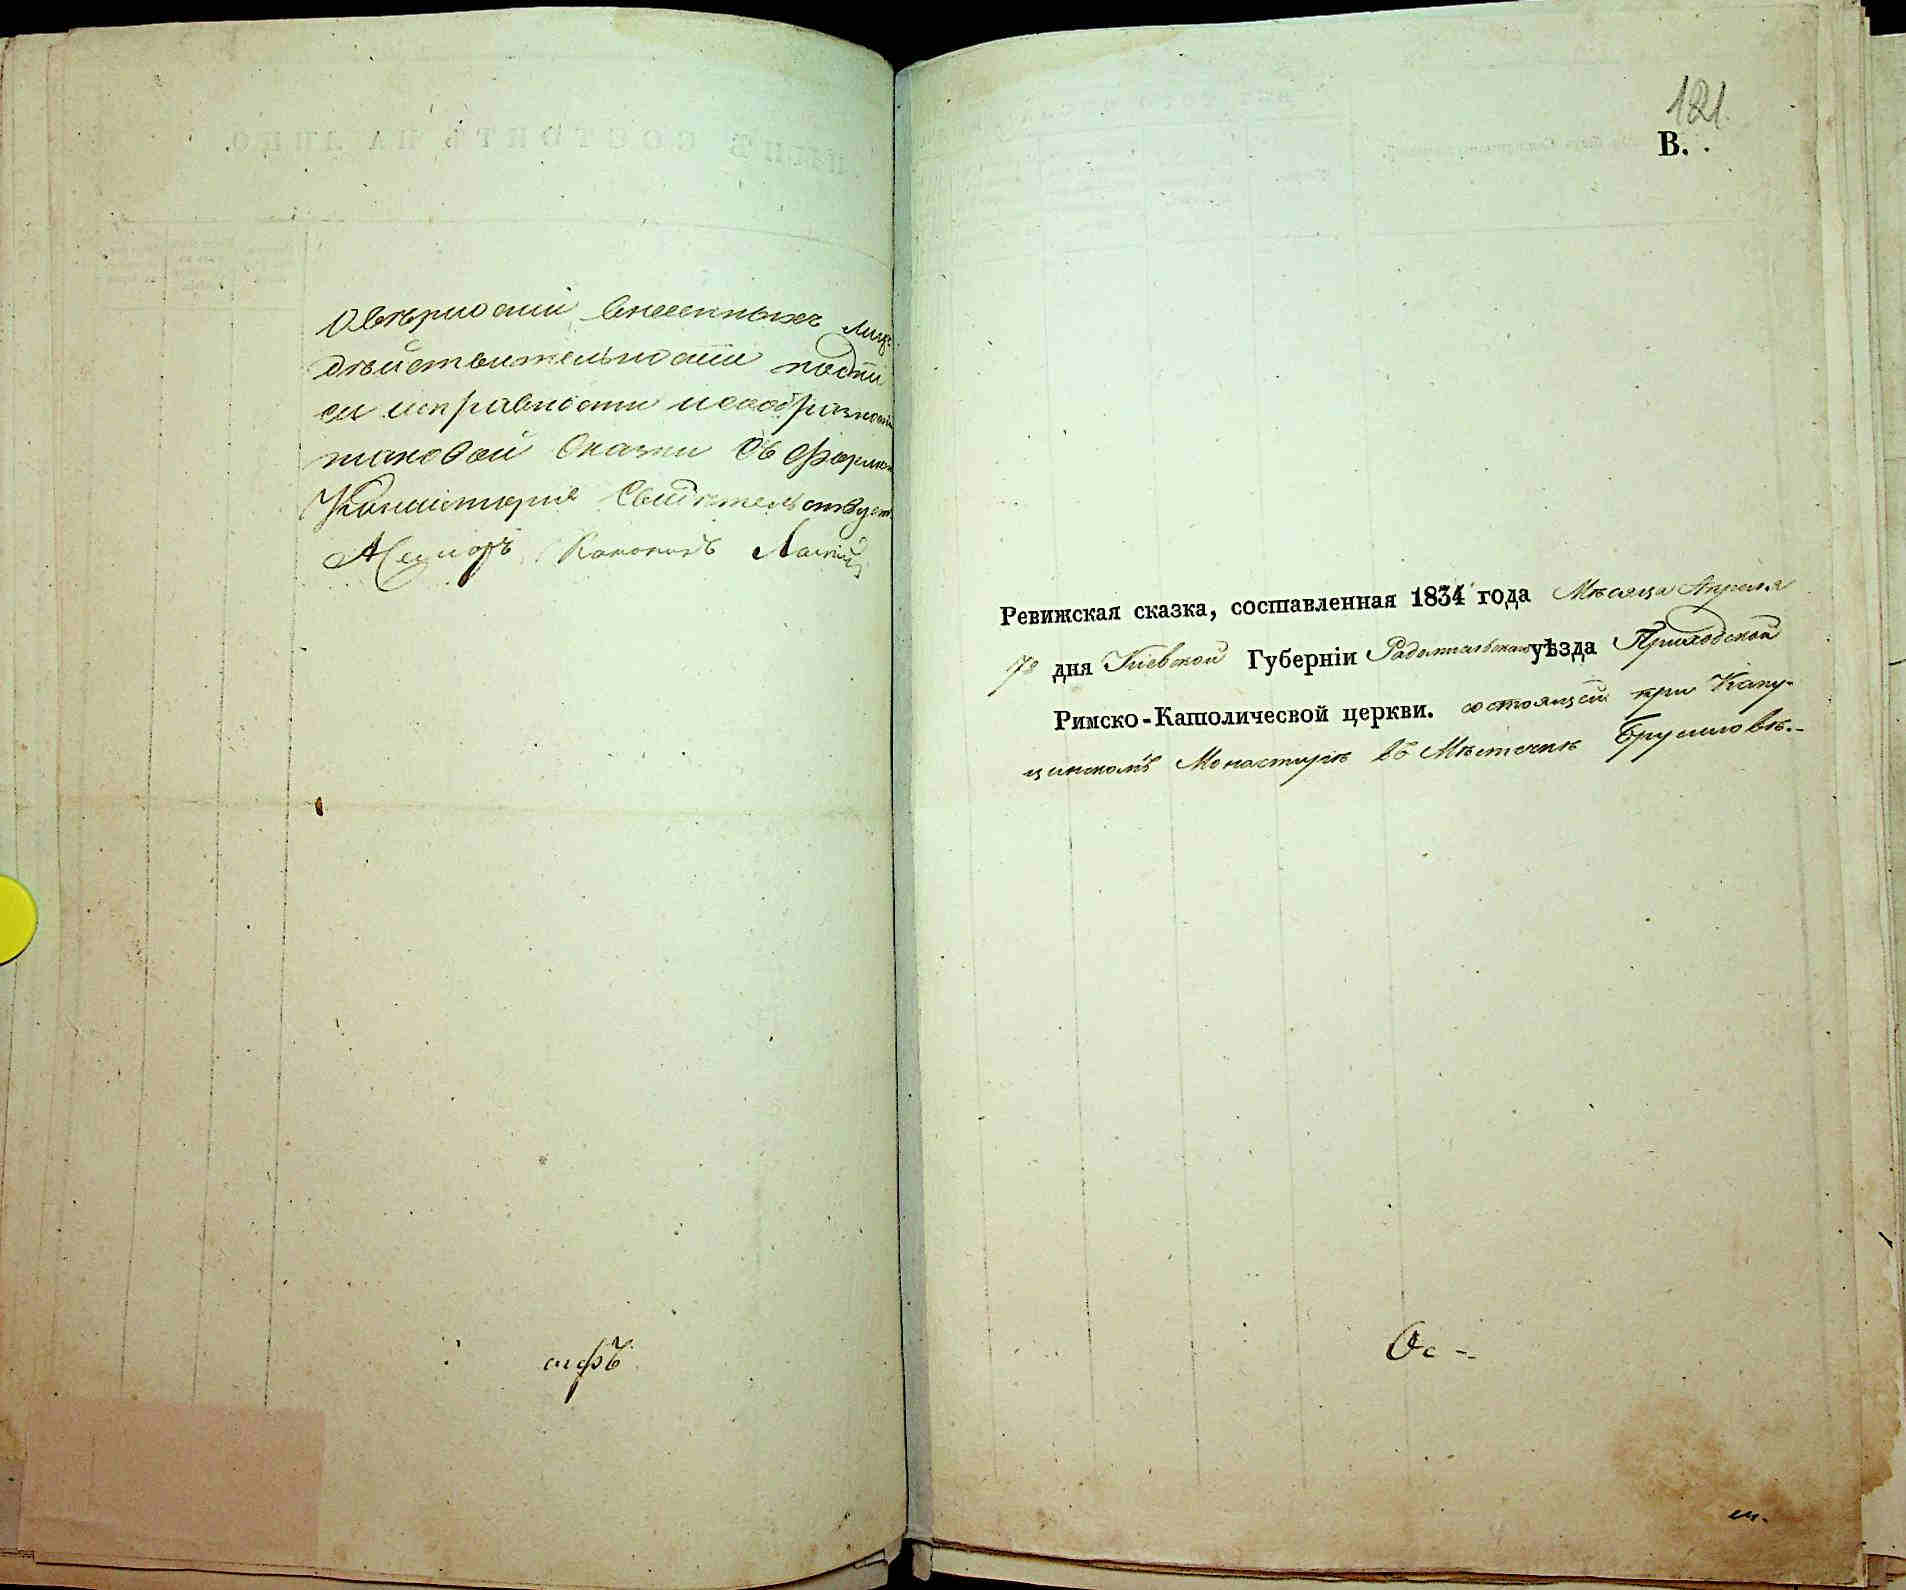 О вѣрности внесенныхъ лицъ
дѣйствительности подпи
си исправности и сообразности
таковой сказки съ формою
Консисторія свидѣтельствуетъ
Асессоръ Каноникъ
121.
В.
Ревижская сказка, составленная 1834 года Мѣсяца Апреля
дня Кіевской Губерніи Радомысльскаго уѣзда Приходской
Римско-Католической церкви. состоящей при Капу-
цинскомъ Монастирѣ въ Мѣстечкѣ Брусиловѣ.-
Ос -